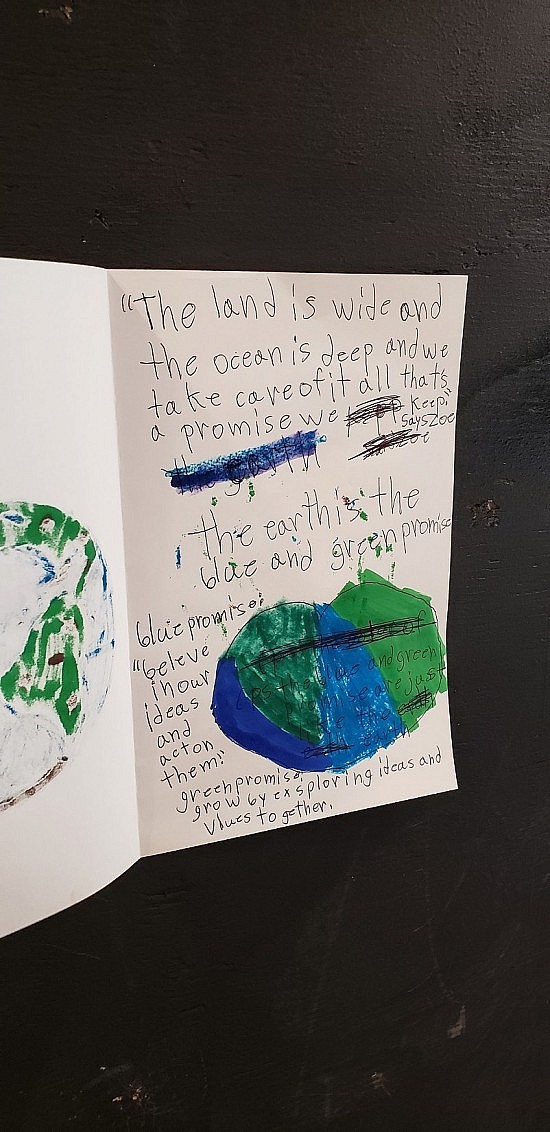 "The land is wide and
the ocean is deep and we
take care of it all that's
a promise we keep"
says Zoe
the earth is the
blue and green promise
blue promise:
"beleve
in our
ideas
and
act on
them."
green promise:
grow by exsploring ideas and
vlues together.
the blue and green
promise are just
earth